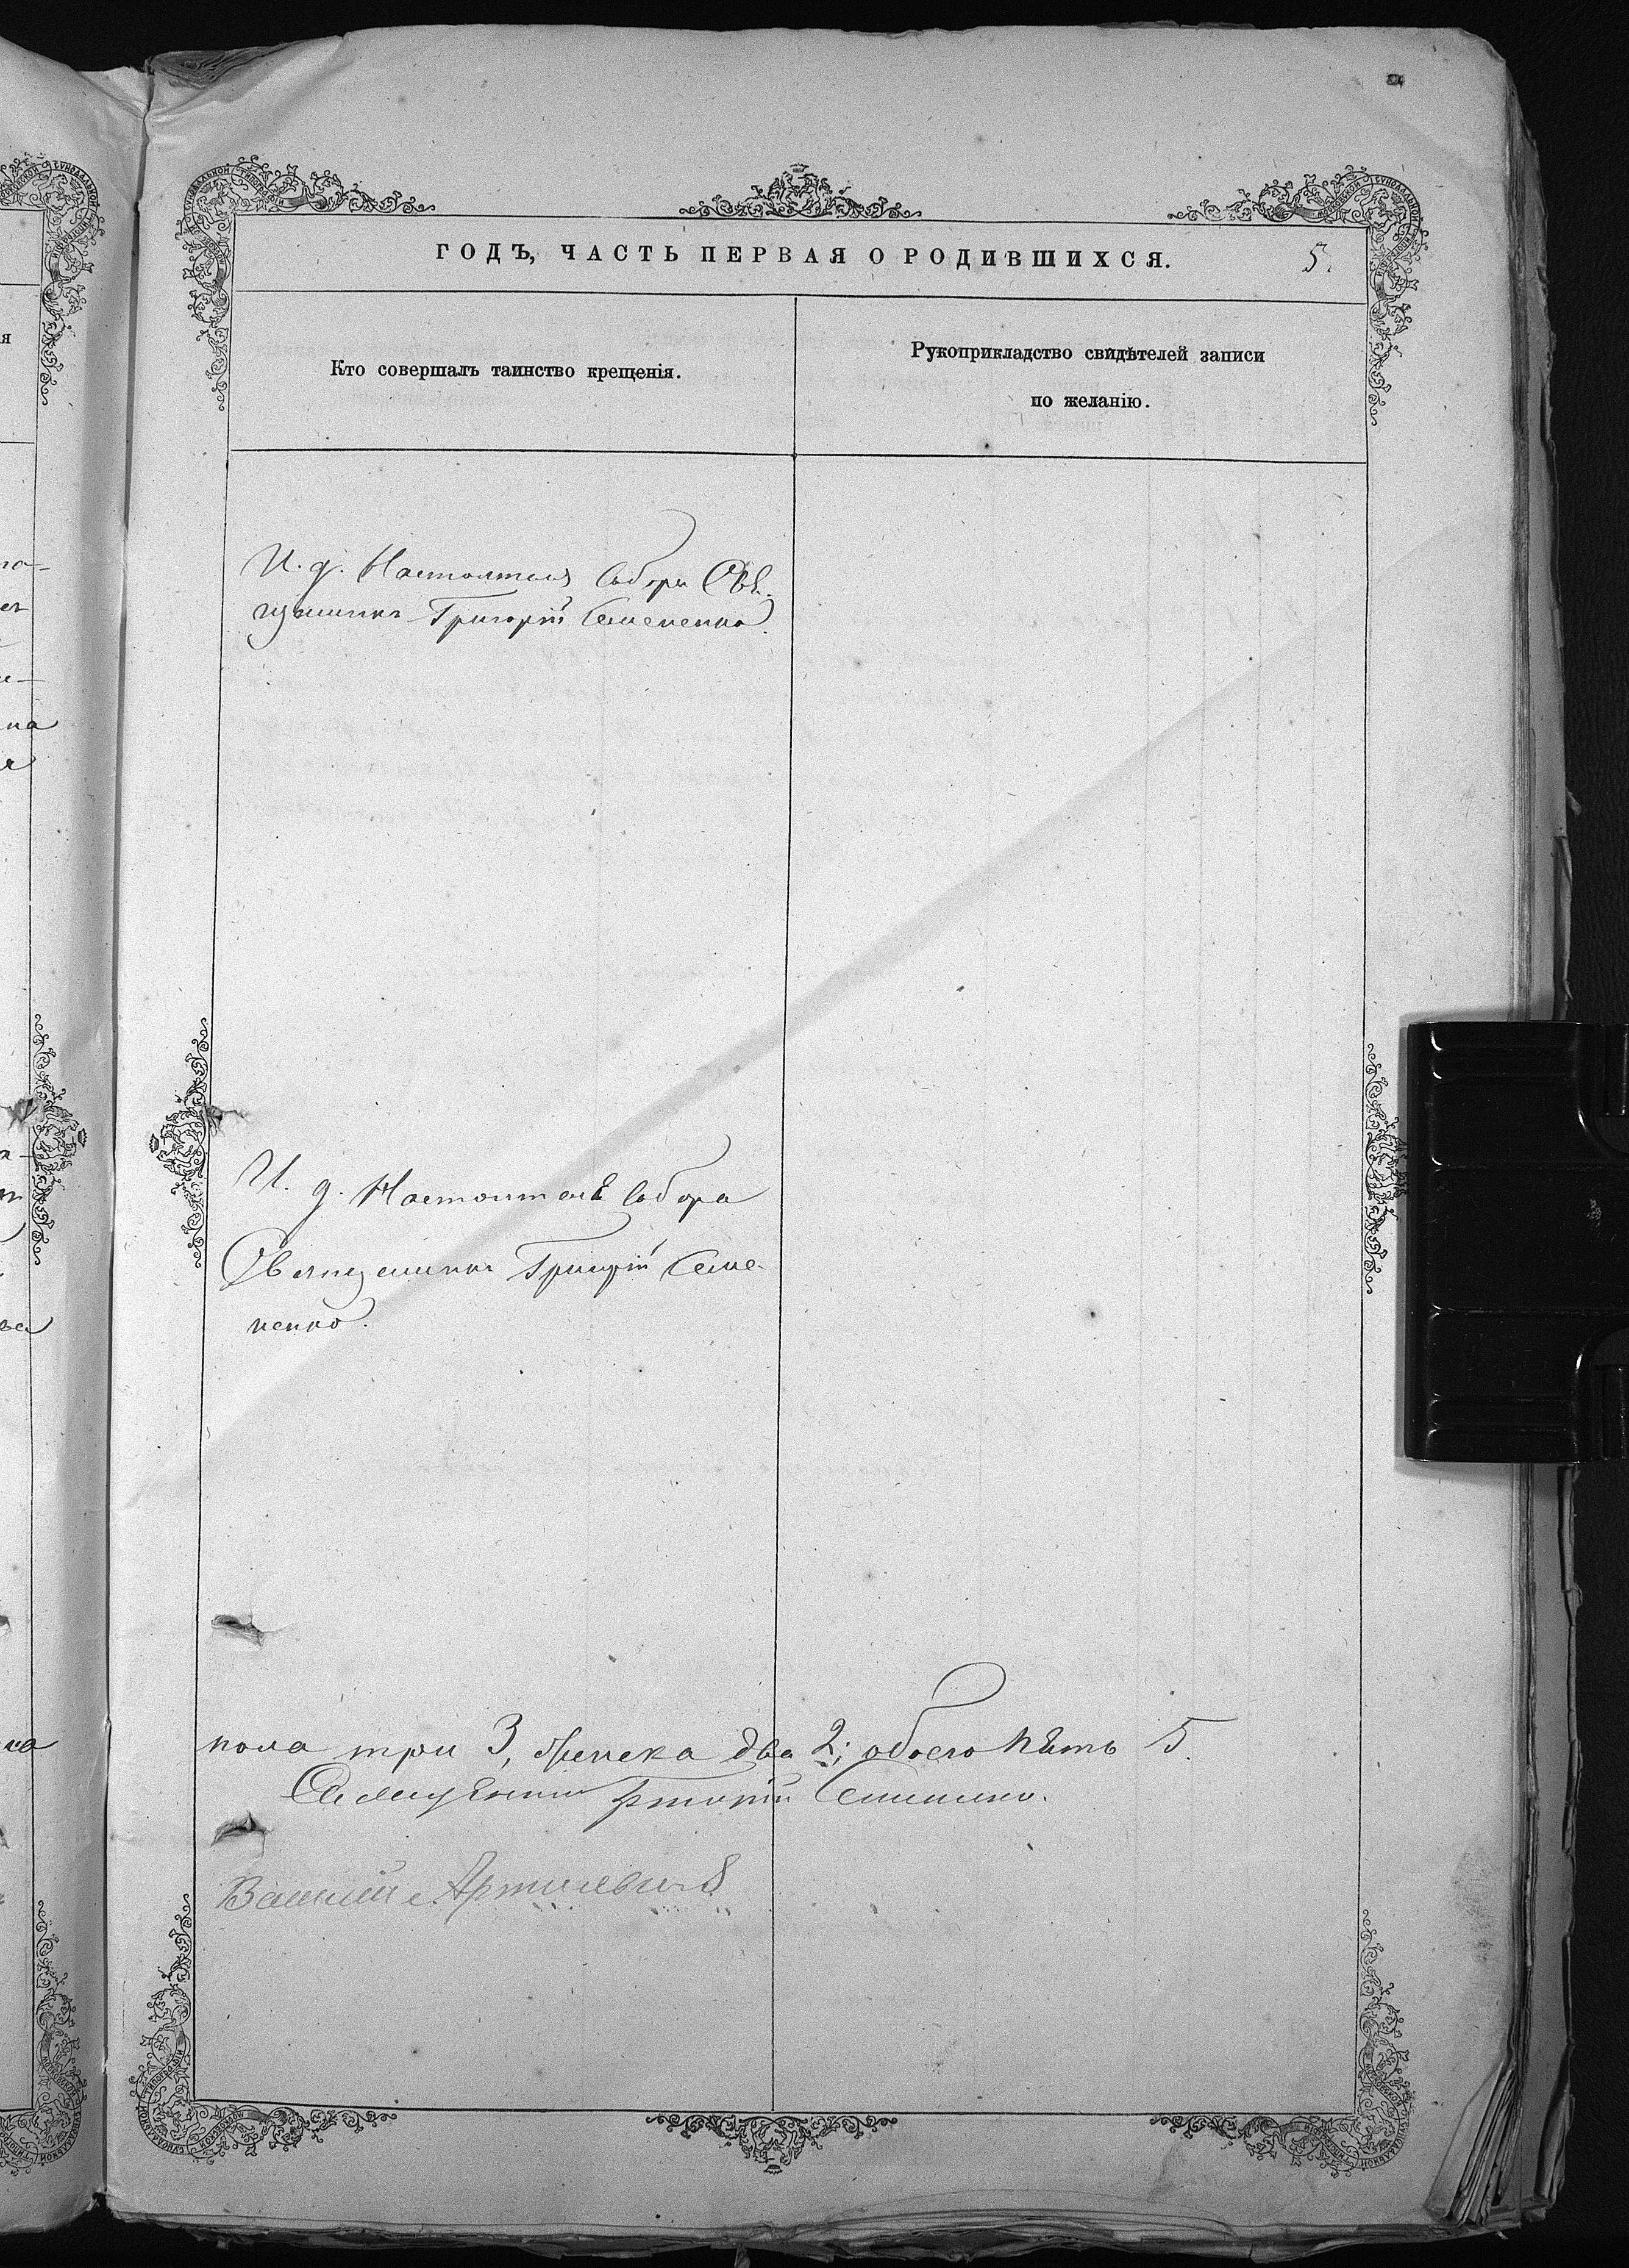 ГОДЪ, ЧАСТЬ ПЕРВАЯ О РОДИВШИХСЯ. 5.
Кто совершалъ таинство крещенія.
Рукоприкладство свидѣтелей записи
по желанію.
И. д. Настоятеля Собора Свя-
щенникъ Григорій Семененко.
И. д. Настоятель Собора
Священникъ Григорій Семе-
ненко.
пола три 3, женска два 2; обоего пять 5.
Священникъ Григорій Семененко.
Василій Артишевичъ